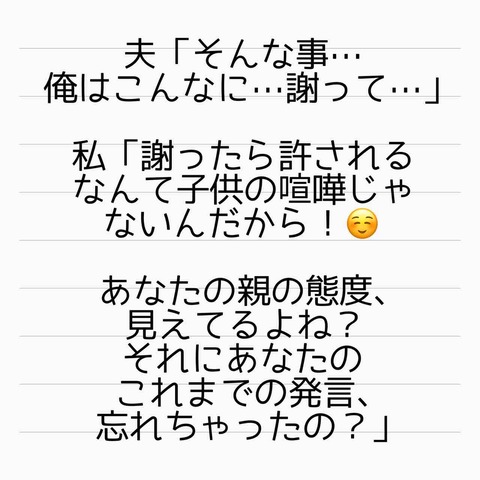 夫「そんな事…
俺はこんなに…謝って…」
私「謝ったら許される
なんて子供の喧嘩じゃ
ないんだから！☺️
あなたの親の態度、
見えてるよね？
それにあなたの
これまでの発言、
忘れちゃったの？」